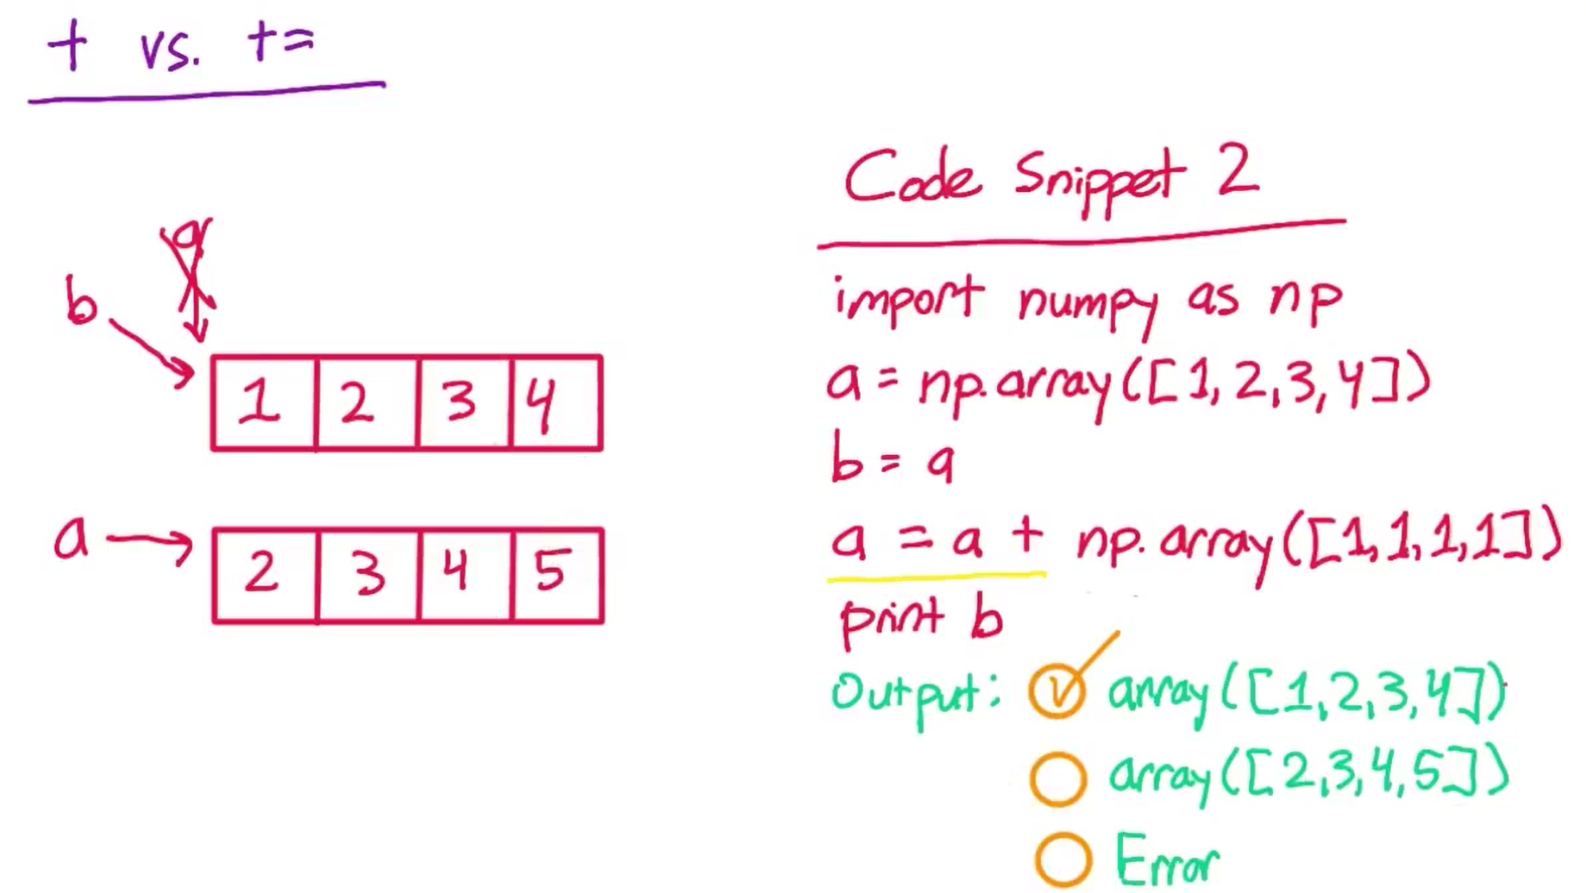 + vs. +=
a
b
1 2 3 4
a
2 3 4 5
Code Snippet 2
import numpy as np
a = np.array([1,2,3,4])
b = a
a = a + np.array([1,1,1,1])
print b
Output: array([1,2,3,4])
array([2,3,4,5])
Error